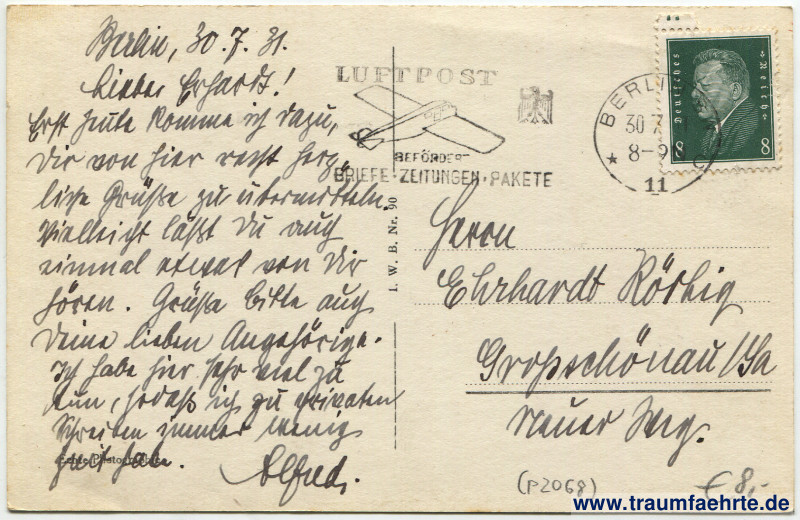 Berlin, 30.7.31.
Lieber Erhardt!
Erst heute komme ich dazu,
Dir von hier recht herz-
liche Grüße zu übermitteln.
Vielleicht läßt Du auch
einmal etwas von Dir
hören. Grüße bitte auch
Deine lieben Angehörige.
Ich habe hier sehr viel zu
tun, sodaß ich zu privaten
Schreiben immer wenig
Zeit habe.
Alfred.
LUFTPOST
BEFÖRDERT
BRIEFE · ZEITUNGEN · PAKETE
BERLIN
30.7
8-9
* 11
Deutsches Reich
8 8
I. W. B. Nr. 90
Herrn
Ehrhardt Röthig
Großschönau/Sa
Neuer Weg.
Echte Photographie
(P2068)
€ 8,-
www.traumfaehrte.de